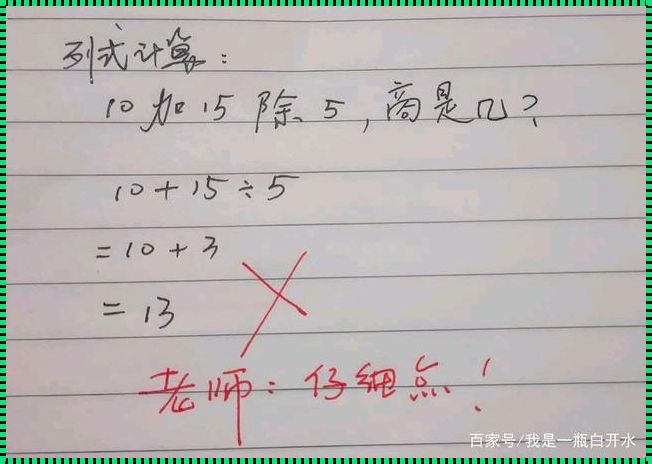 列式计算：
10加15除5，商是几？
10+15÷5
=10+3
=13
老师：仔细点！
百家号/我是一瓶白开水